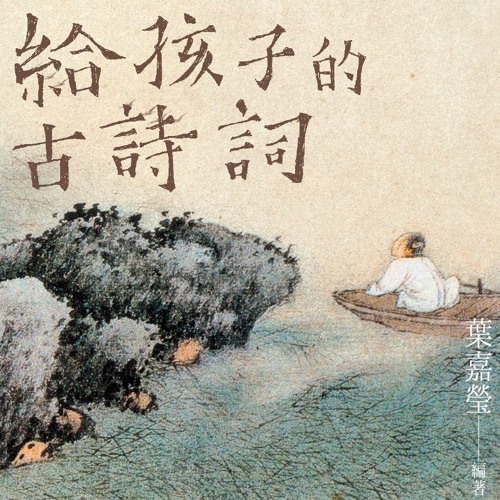 給孩子的
古詩詞
葉嘉瑩——編著